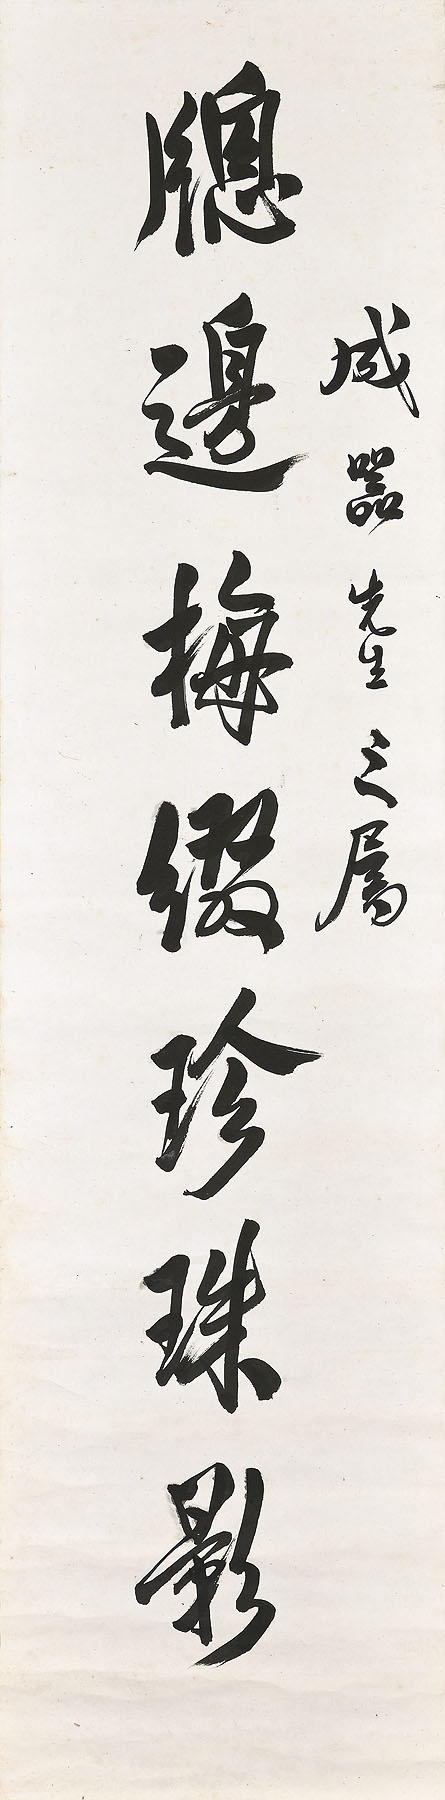 成器先生之属
牕邊梅綴珍珠影